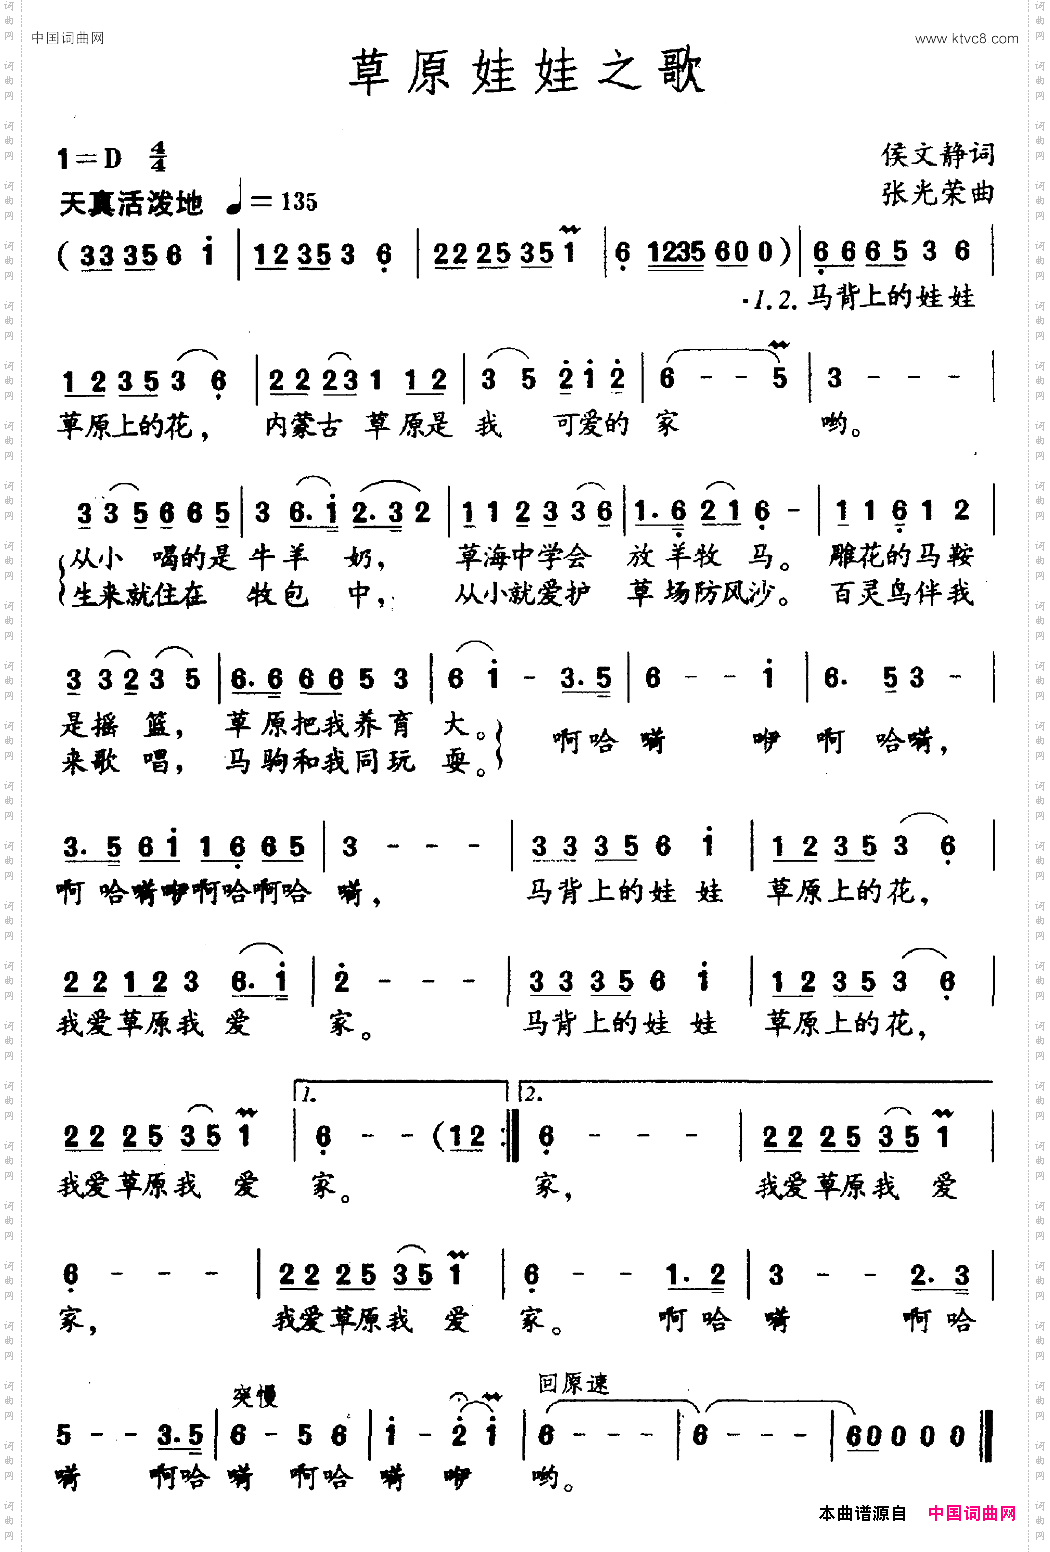 中国词曲网
www.ktvc8.com
草原娃娃之歌
1=D 4/4
侯文静词
天真活泼地 ♩=135
张光荣曲
(33356i|12353 6|2225351|6 1235600)|6665 3 6|
·1.2.马背上的娃娃
1 2 3 5 3 6|2 2 2 3 1 1 2|3 5 2 1 2|6 - - 5|3 - - -|
草原上的花， 内蒙古 草原是 我 可爱的 家 哟。
3 3 5 6 6 5|3 6. i 2. 3 2|1 1 2 3 3 6|1. 6 2 1 6 -|1 1 6 1 2
从小 喝的是 牛羊 奶， 草海中学会 放羊牧 马。 雕花的马鞍
生来就住在 牧包 中， 从小就爱护 草场防风沙。 百灵鸟伴我
3 3 2 3 5|6. 6 6 6 5 3|6 i - 3. 5|6 - - i|6. 5 3 -|
是摇 篮， 草原把我养育 大。 啊哈 嗬 咿 啊 哈嗬，
来歌 唱， 马驹和我同玩 耍。
3. 5 6 i 1 6 6 5|3 - - -|3 3 3 5 6 i|1 2 3 5 3 6|
啊 哈嗬咿啊哈啊哈 嗬， 马背上的娃 娃 草原上的花，
2 2 1 2 3 6. i|2 - - -|3 3 3 5 6 i|1 2 3 5 3 6|
我爱草原我 爱 家。 马背上的娃 娃 草原上的花，
1. 2.
2 2 2 5 3 5 1|6 - - (1 2:|6 - - -|2 2 2 5 3 5 1|
我爱草原我 爱 家。 家， 我爱草原我 爱
6 - - -|2 2 2 5 3 5 1|6 - - 1. 2|3 - - 2. 3|
家， 我爱草原我 爱 家。 啊 哈 嗬 啊哈
突慢 回原速
5 - - 3. 5|6 - 5 6|i - 2 i|6 - - -|6 - - -|6 0 0 0 0|
嗬 啊哈 嗬 啊哈 嗬 咿 哟。
本曲谱源自 中国词曲网